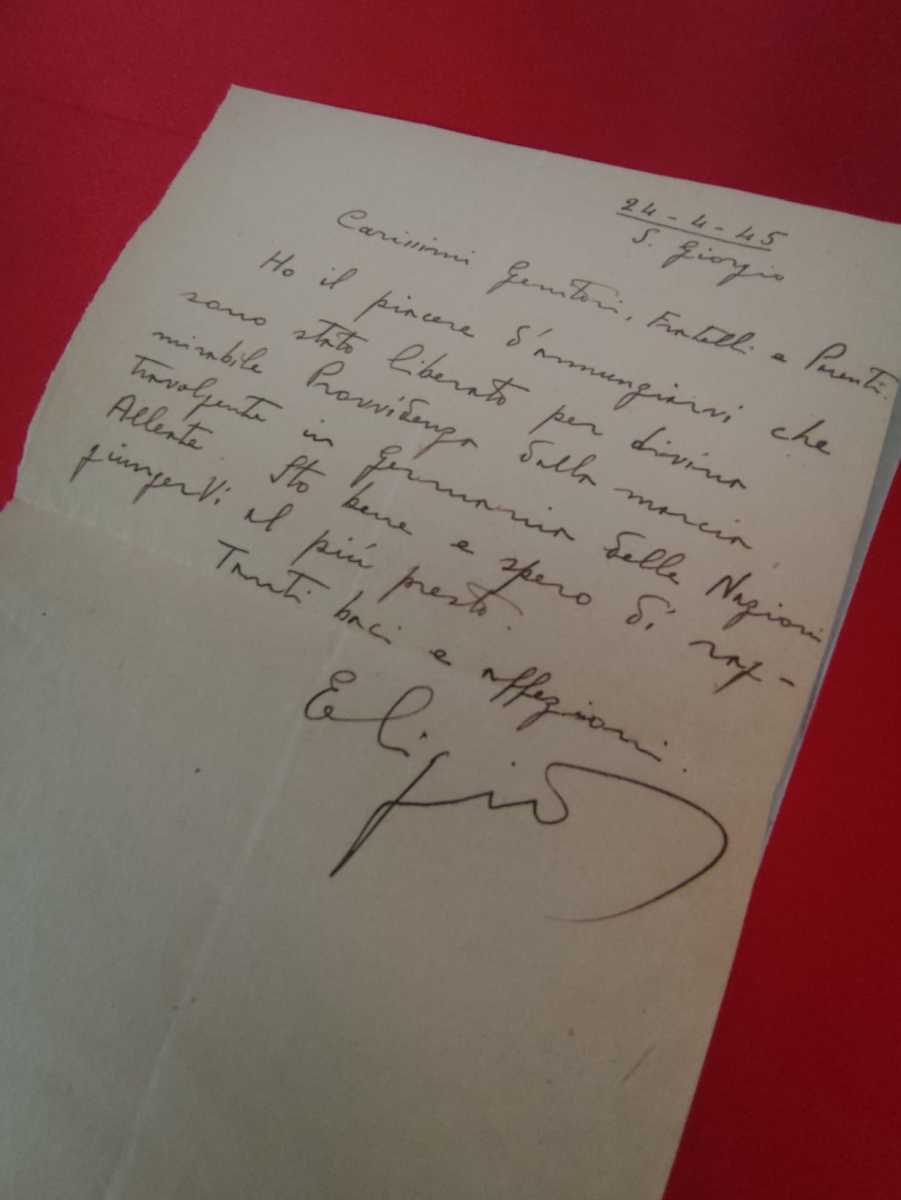 24-4-45
S. Giorgio
Carissimi Genitori, Fratelli e Parenti.
Ho il piacere d'annunziarvi che
sono stato liberato per divina
mirabile Provvidenza dalla marcia
travolgente in Germania delle Nazioni
Alleate. Sto bene e spero di rag-
giungervi al più presto.
Tanti baci e affezioni.
Eligio